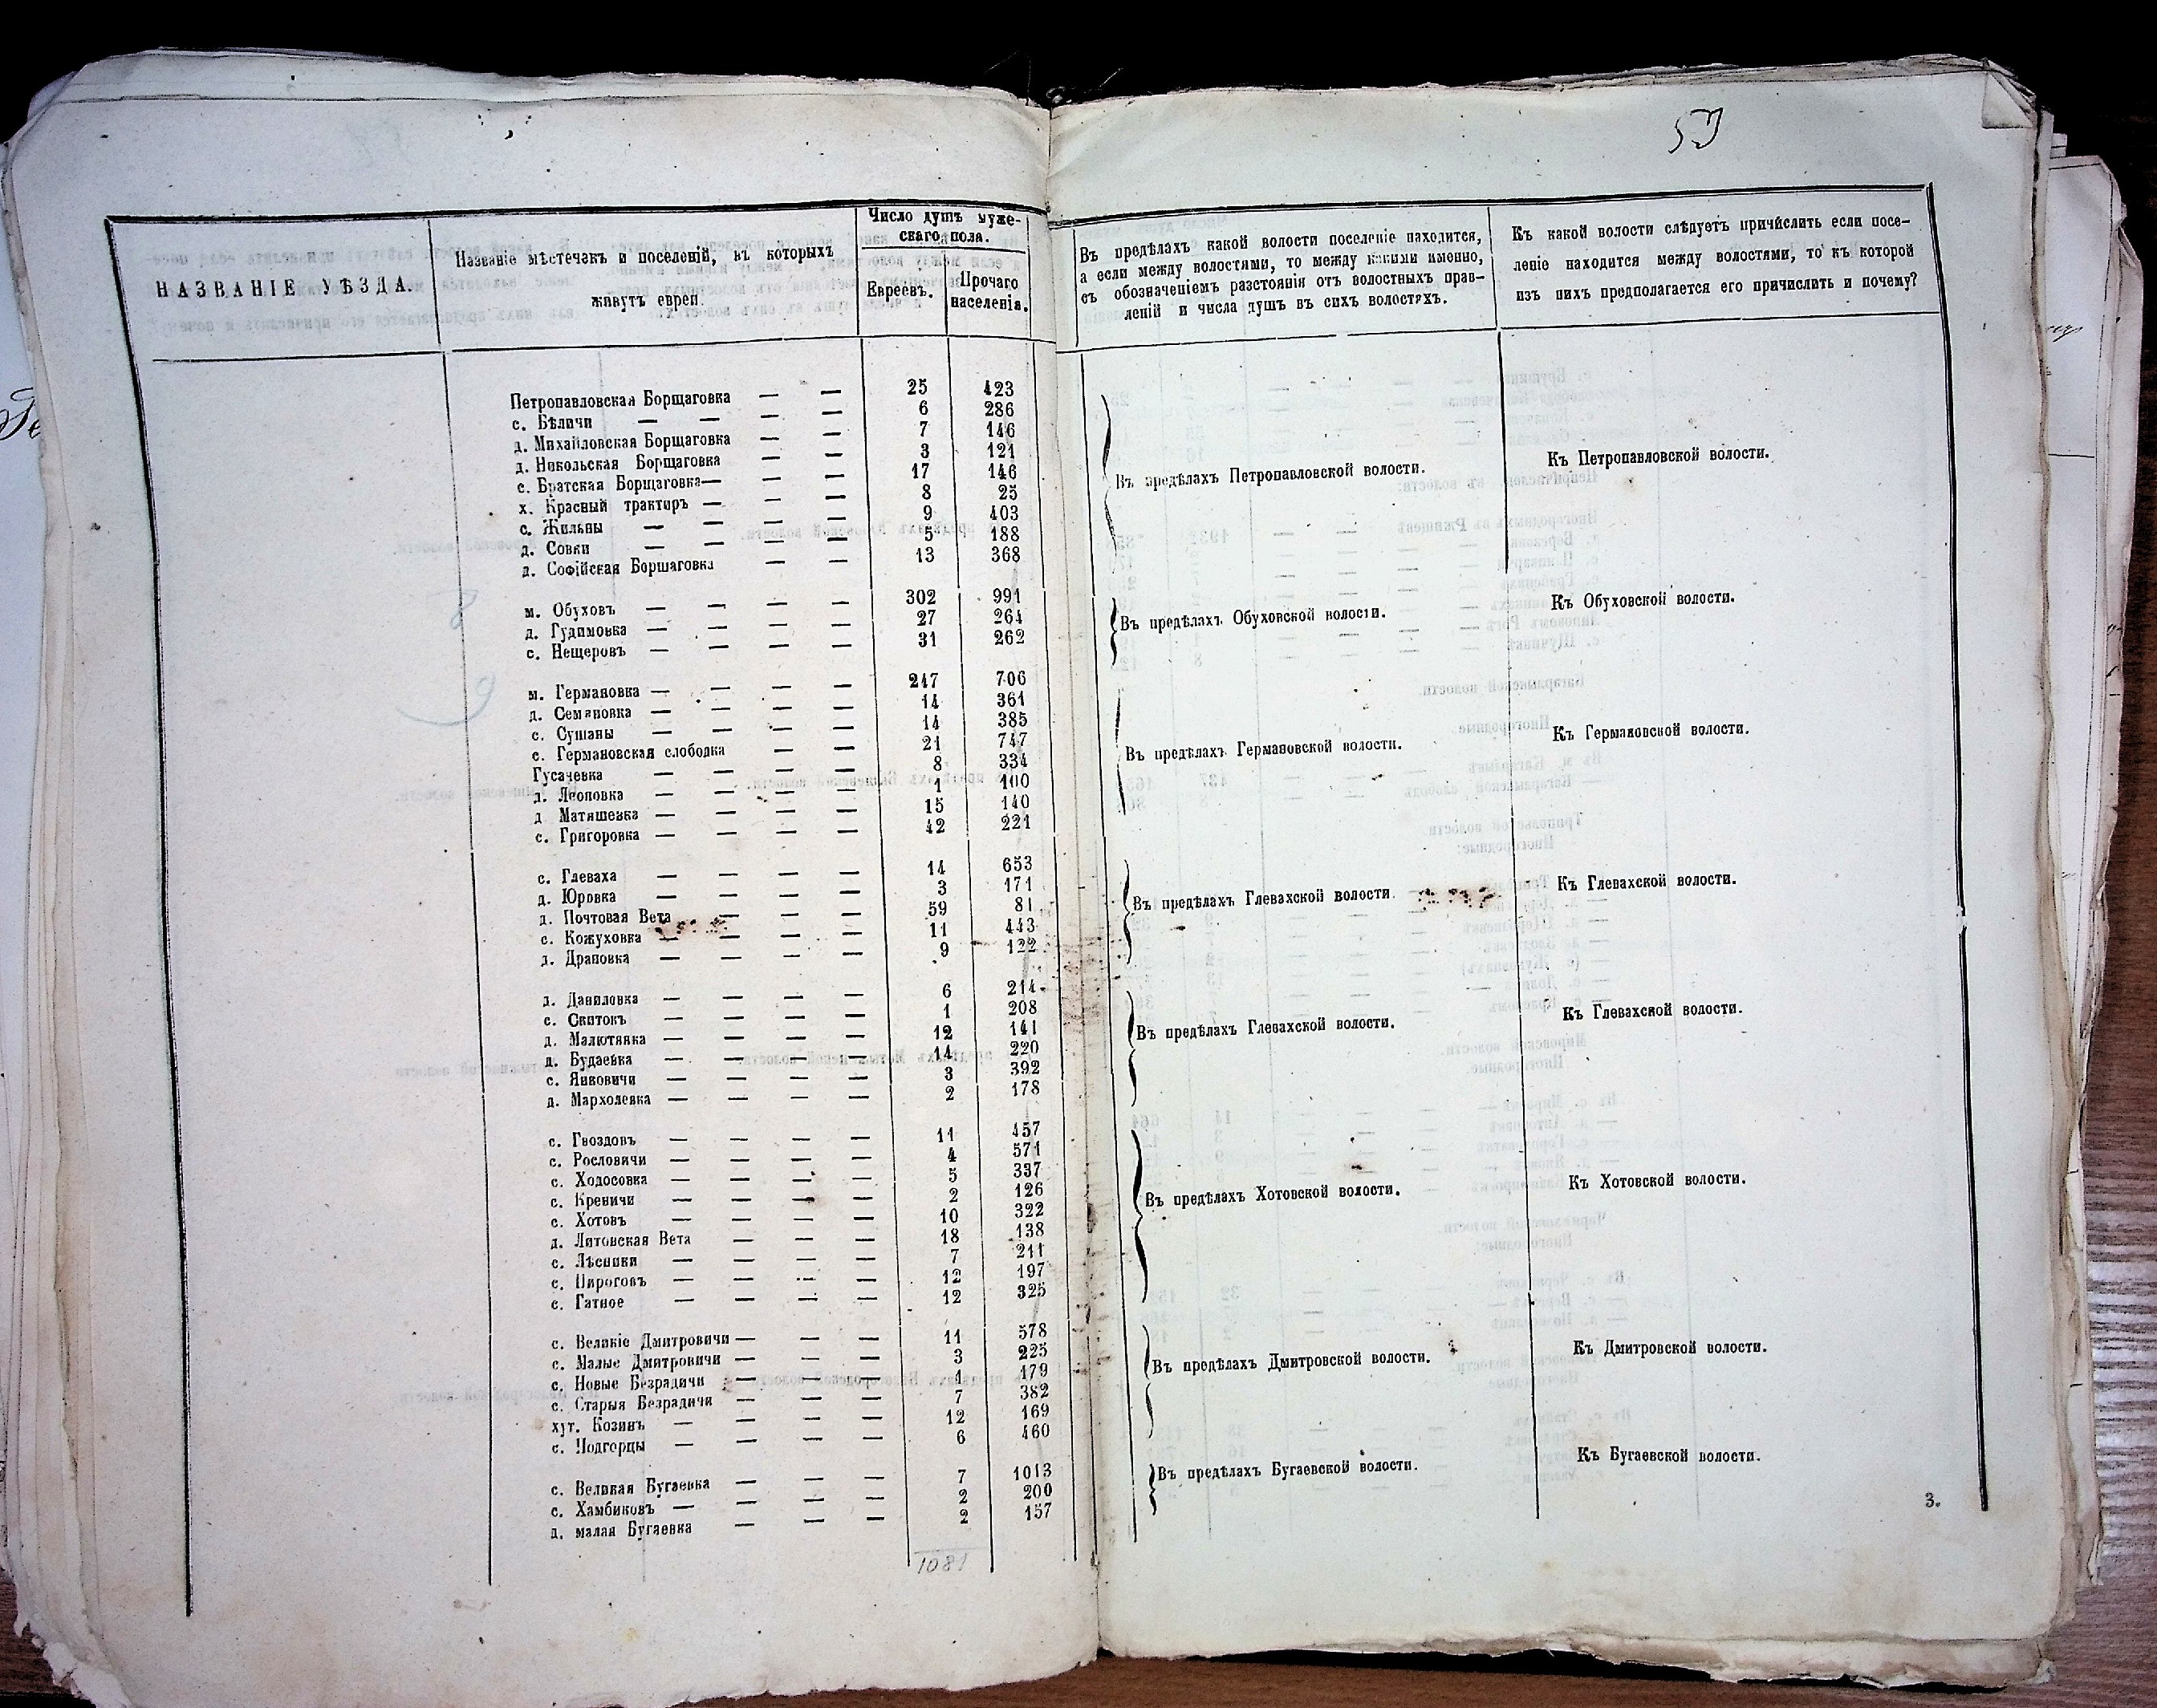 53
НАЗВАНІЕ УѢЗДА.
Названіе мѣстечекъ и поселеній, въ которыхъ
живутъ евреи.
Число душъ муже-
скаго пола.
Евреевъ.
Прочаго
населенія.
Въ предѣлахъ какой волости поселеніе находится,
а если между волостями, то между какими именно,
съ обозначеніемъ разстоянія отъ волостныхъ прав-
леній и числа душъ въ сихъ волостяхъ.
Къ какой волости слѣдуетъ причислить если посе-
леніе находится между волостями, то къ которой
изъ нихъ предполагается его причислить и почему?
Петропавловская Борщаговка — — 25 423
с. Бѣличи — — — — 6 286
д. Михайловская Борщаговка — — 7 146
д. Никольская Борщаговка — — 3 121
с. Братская Борщаговка — — — 17 146
х. Красный трактиръ — — — 8 25
с. Жиляны — — — — 9 403
д. Совки — — — — 5 188
д. Софійская Борщаговка — — 13 368
Въ предѣлахъ Петропавловской волости.
Къ Петропавловской волости.
м. Обуховъ — — — — 302 991
д. Гудимовка — — — — 27 264
с. Нещеровъ — — — — 31 262
Въ предѣлахъ Обуховской волости.
Къ Обуховской волости.
м. Германовка — — — — 247 706
д. Семановка — — — — 14 361
с. Сушаны — — — — 14 385
с. Германовская слободка — — 21 747
Гусачевка — — — — 8 334
д. Леоновка — — — — 1 100
д Матяшевка — — — — 15 140
с. Григоровка — — — — 42 221
Въ предѣлахъ Германовской волости.
Къ Германовской волости.
с. Глеваха — — — — 14 653
д. Юровка — — — — 3 171
д. Почтовая Вета — — — 59 81
с. Кожуховка — — — — 11 443
д. Драновка — — — — 9 122
Въ предѣлахъ Глевахской волости.
Къ Глевахской волости.
д. Даниловка — — — — 6 214
с. Скитокъ — — — — 1 208
д. Малютянка — — — — 12 141
д. Будаевка — — — — 14 220
с. Янковичи — — — — 3 392
д. Мархолевка — — — — 2 178
Въ предѣлахъ Глевахской волости.
Къ Глевахской волости.
с. Гвоздовъ — — — — 11 457
с. Рословичи — — — — 4 571
с. Ходосовка — — — — 5 337
с. Креничи — — — — 2 126
с. Хотовъ — — — — 10 322
д. Литовская Вета — — — 18 138
с. Лѣсники — — — — 7 211
с. Пироговъ — — — — 12 197
с. Гатное — — — — 12 325
Въ предѣлахъ Хотовской волости.
Къ Хотовской волости.
с. Великіе Дмитровичи — — — 11 578
с. Малые Дмитровичи — — — 3 225
с. Новые Безрадичи — — — 1 179
с. Старыя Безрадичи — — — 7 382
хут. Козинъ — — — — 12 169
с. Подгорцы — — — — 6 460
Въ предѣлахъ Дмитровской волости.
Къ Дмитровской волости.
с. Великая Бугаевка — — — 7 1013
с. Хамбиковъ — — — — 2 200
д. малая Бугаевка — — — 2 157
Въ предѣлахъ Бугаевской волости.
Къ Бугаевской волости.
1081
3.